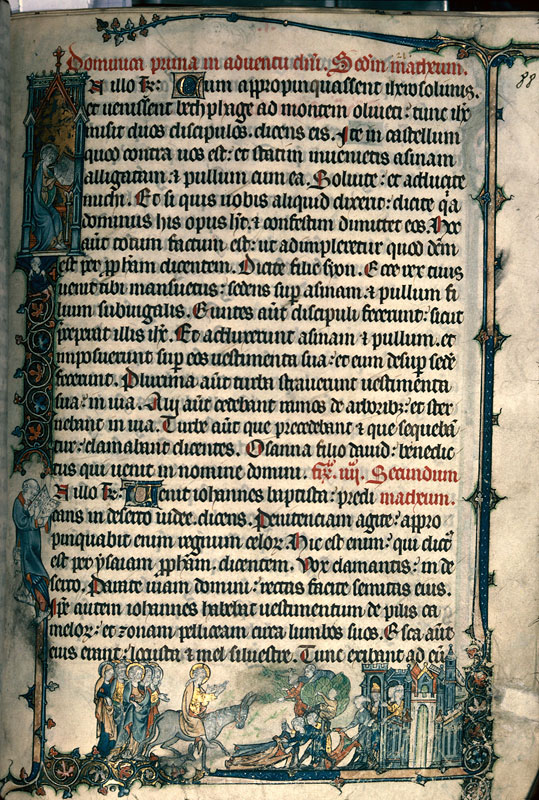 Dominica prima in adventu dni. Scdm matheum.
88
In illo tr: Cum appropinquassent iherosolimis.
et venissent bethphage ad montem oliveti: tunc ihc
misit duos discipulos. dicens eis. Ite in castellum
quod contra vos est: et statim invenietis asinam
alligatam: & pullum cum ea. Solvite: et adducite
michi. Et si quis vobis aliquid dixerit: dicite qa
dominus his opus ht. & confestim dimittet eos. Hoc
aut totum factum est: ut adimpleretur quod dcm
est per ppham dicentem. Dicite filie syon. Ecce rex tuus
venit tibi mansuetus: sedens sup asinam. & pullum fi
lium subiugalis. Euntes aut discipuli fecerunt: sicut
preperat illis ihc. Et adduxerunt asinam & pullum. et
imposuerunt sup eos vestimenta sua: et eum desup sede
fecerunt. Plurima aut turba straverunt vestimenta
sua: in via. Alii aut cedebant ramos de arboribz: et ster
nebant in via. Turbe aut que precedebant & que sequeba
tur: clamabant dicentes. Osanna filio david: benedic
tus qui venit in nomine domini. fix. iiii. Secundum
In illo tr: Venit iohannes baptista: predi matheum.
cans in deserto iudee. dicens. Penitentiam agite: appro
pinquabit enim regnum celor. Hic est enim: qui dictus
est per ysaiam ppham. dicentem. Vox clamantis: in de
serto. Parate viam domini: rectas facite semitas eius.
Ipe autem iohannes habebat vestimentum de pilis ca
melor: et zonam pelliceam circa lumbos suos. Esca aut
eius erant: locusta & mel silvestre. Tunc exibant ad eu